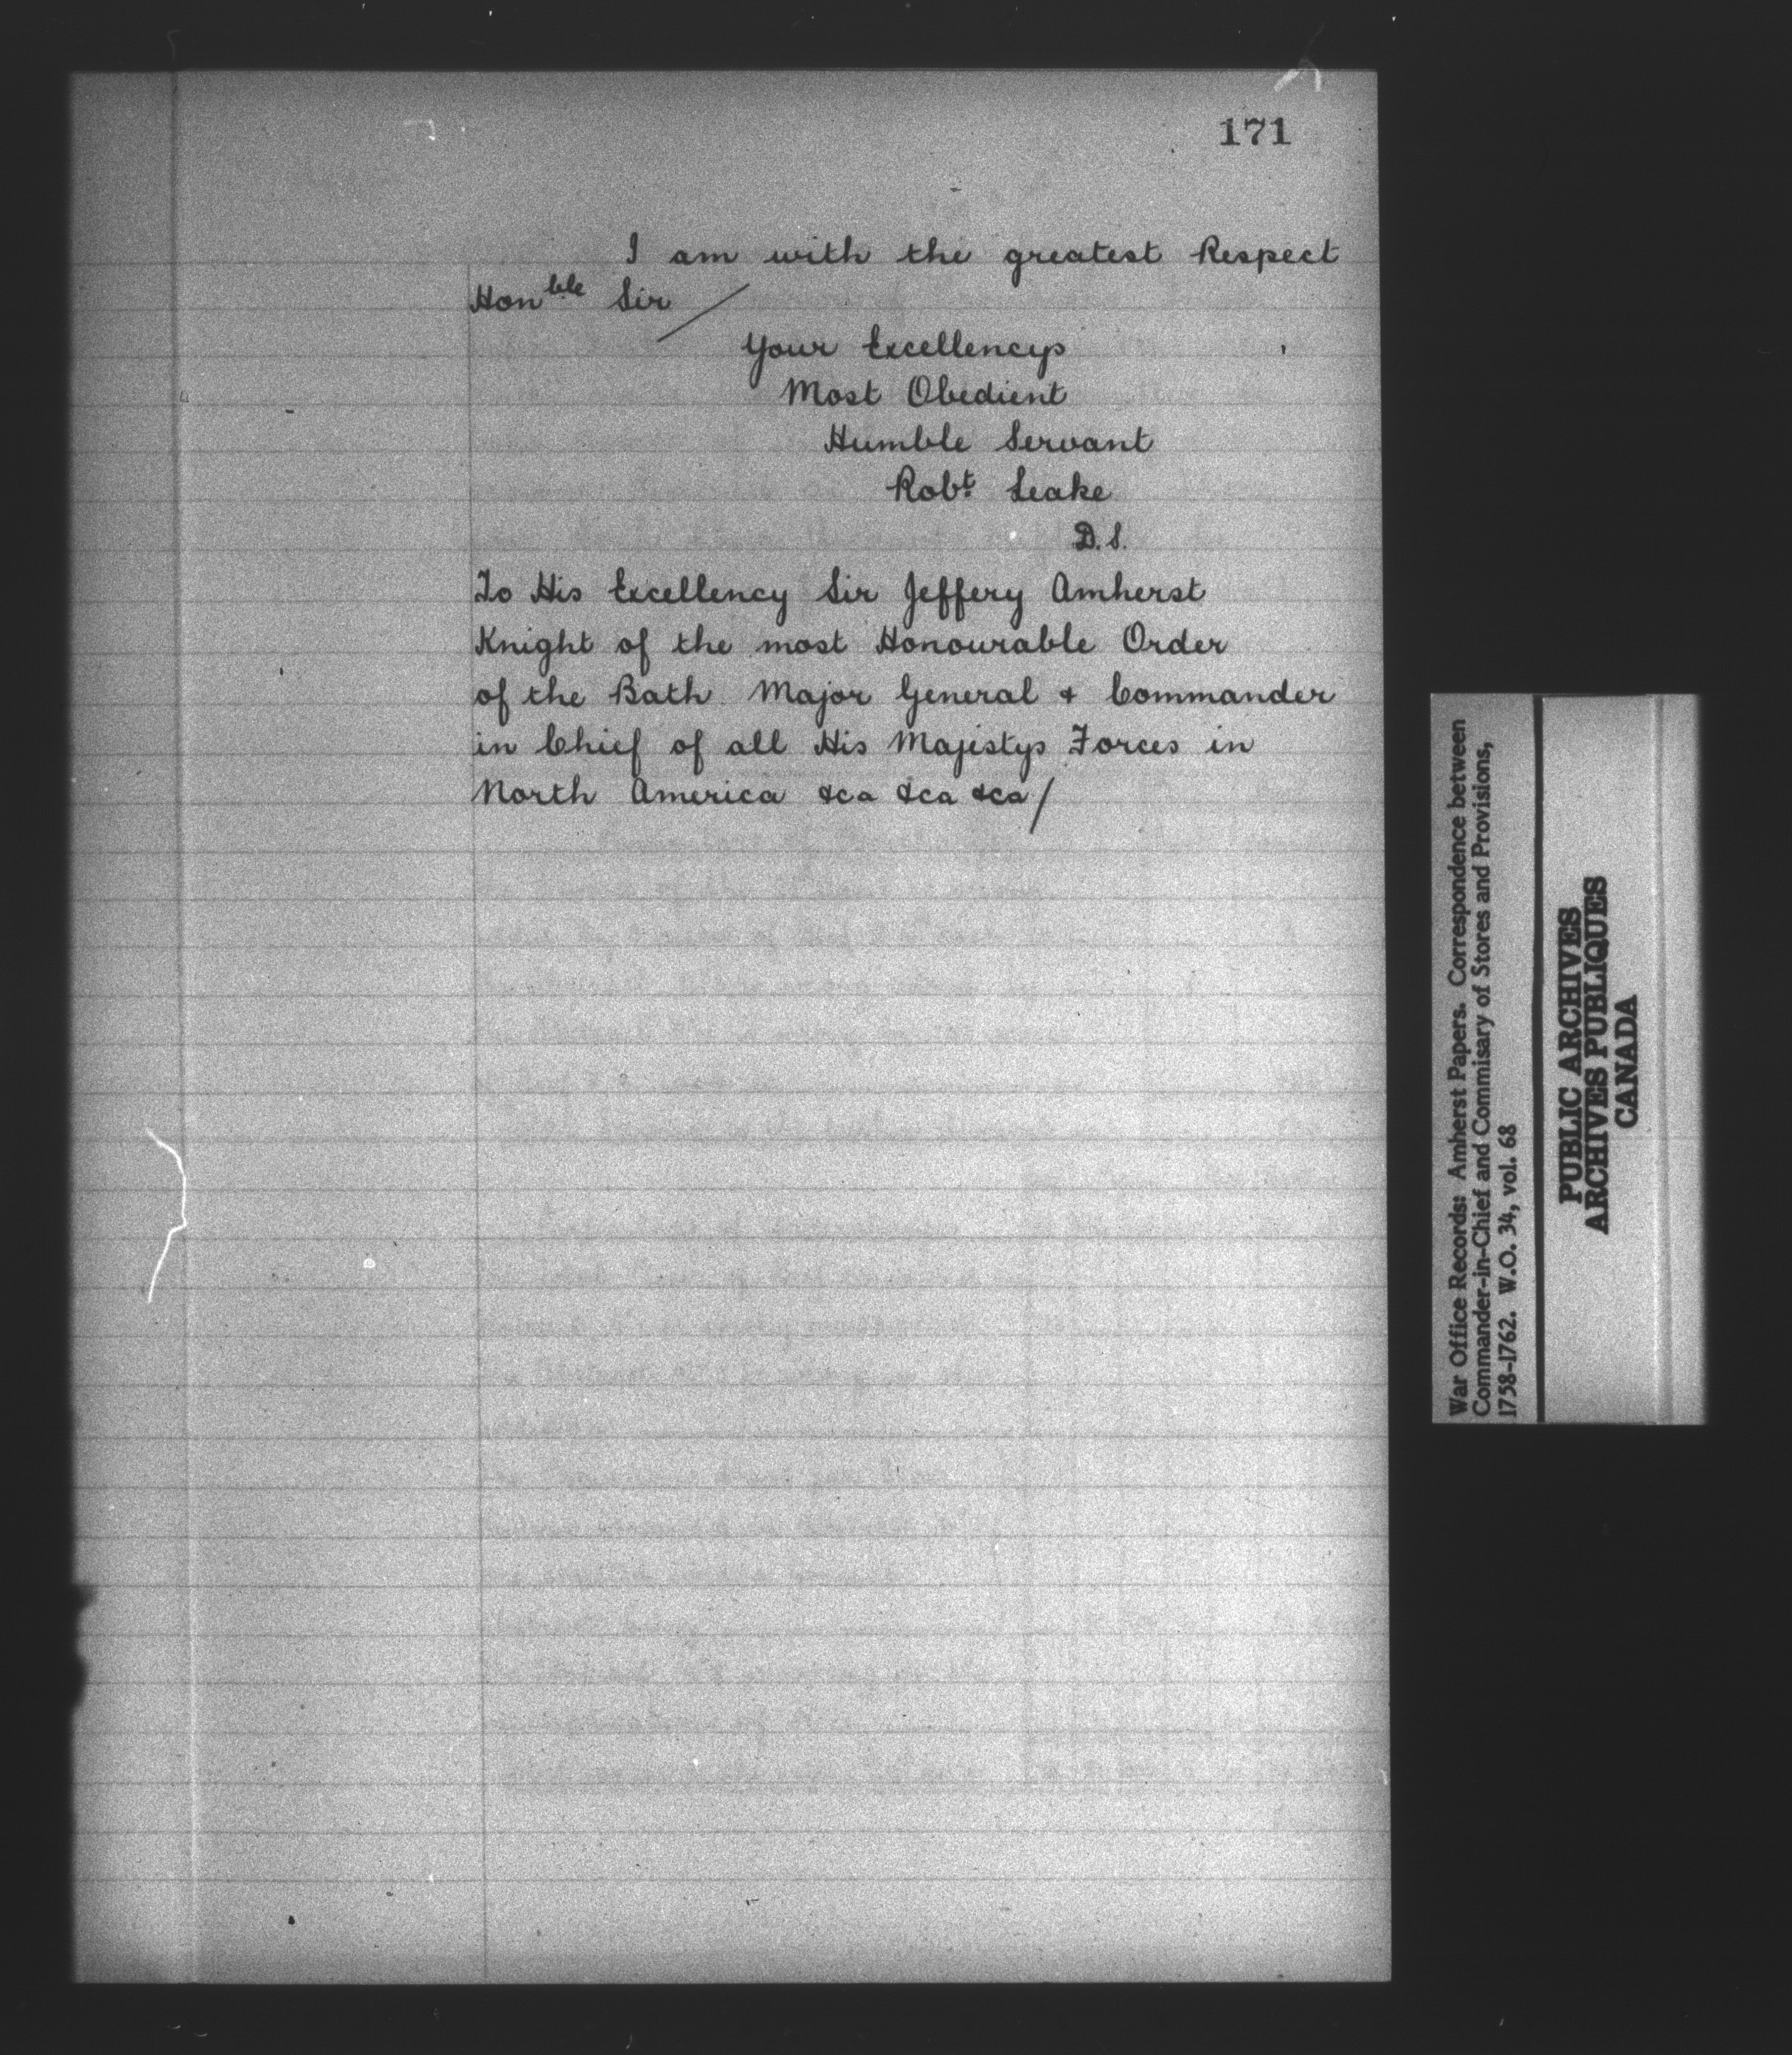 171
I am with the greatest Respect
Honble Sir /
Your Excellencys
Most Obedient
Humble Servant
Robt. Leake
D.S.
To His Excellency Sir Jeffery Amherst
Knight of the most Honourable Order
of the Bath Major General & Commander
in Chief of all His Majestys Forces in
North America &ca &ca &ca /
War Office Records: Amherst Papers. Correspondence between
Commander-in-Chief and Commisary of Stores and Provisions,
1758-1762. W.O. 34, vol. 68
PUBLIC ARCHIVES
ARCHIVES PUBLIQUES
CANADA